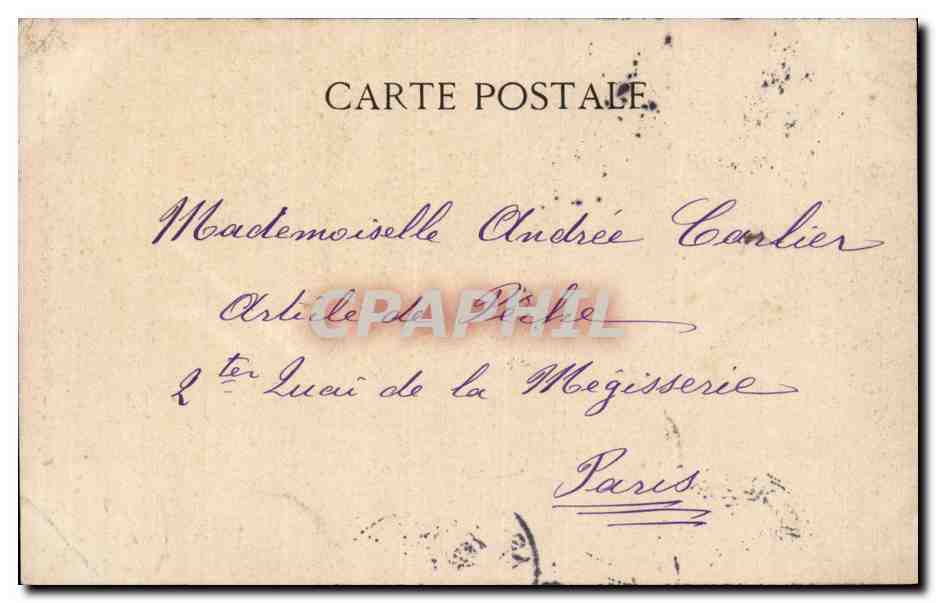 CARTE POSTALE
Mademoiselle Andrée Carlier
Article de Pêche
CPAPHIL
2 ter Quai de la Mégisserie
Paris